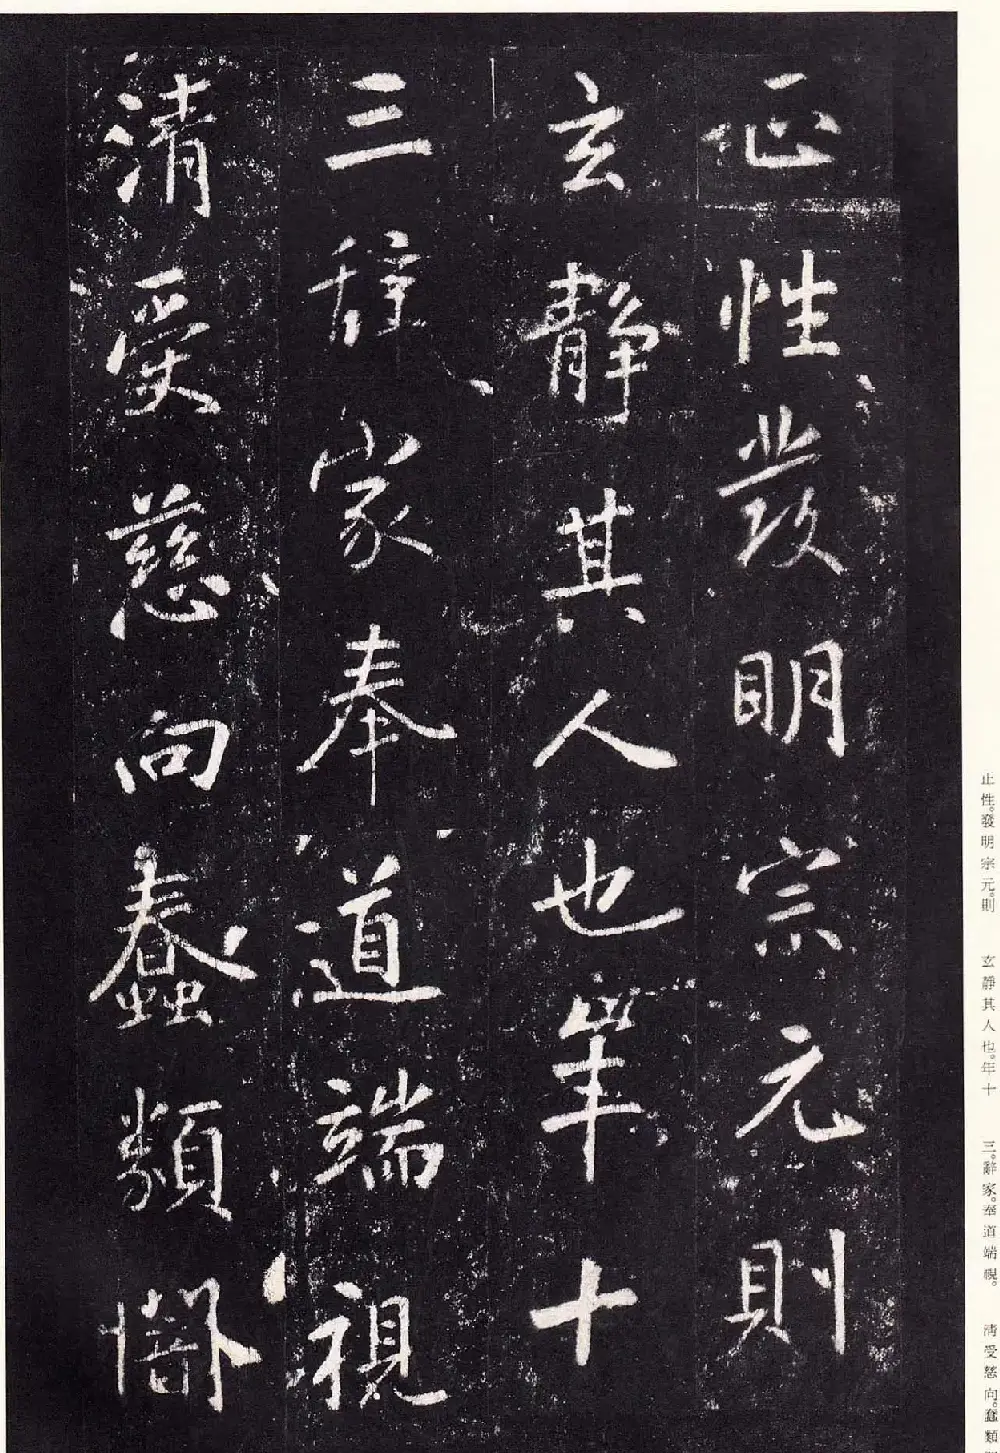 正性發明宗元則
玄靜其人也年十
三辭家奉道端視
清受慈向蠢類闇
止性。發明宗元。則
玄靜其人也。年十
三。辭家。奉道端視。
清受慈向。蠢類